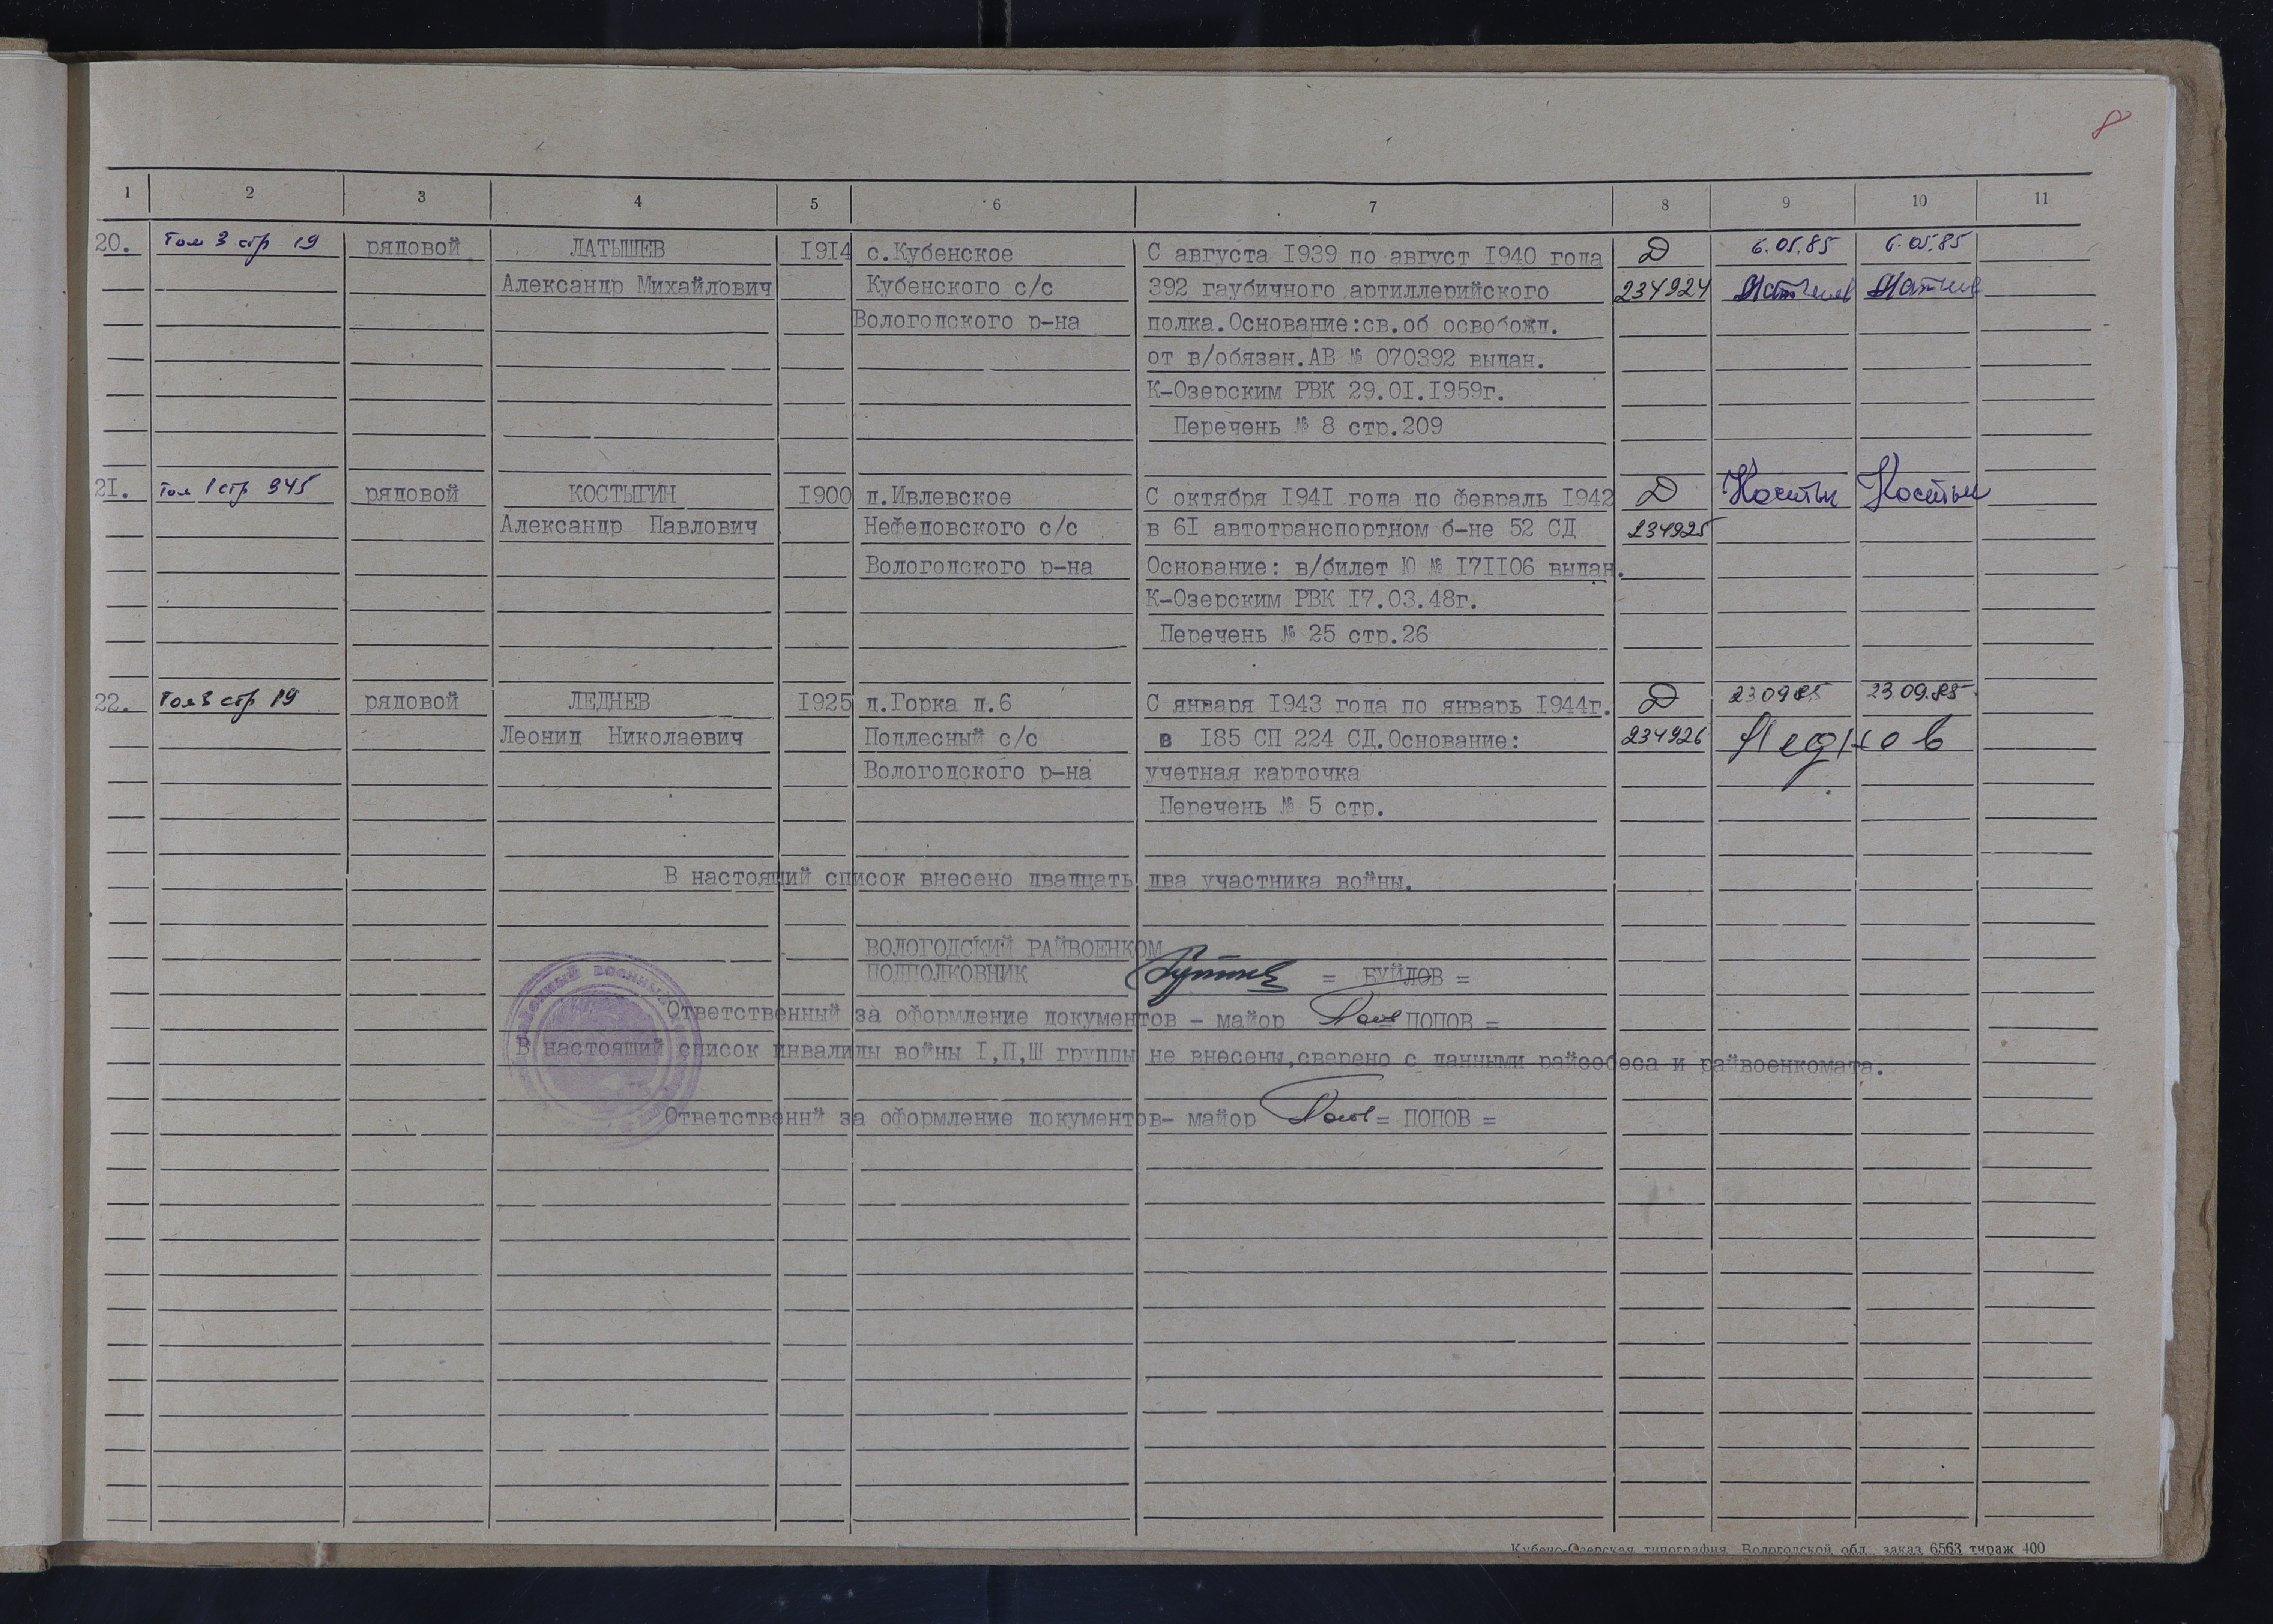 8
1 2 3 4 5 6 7 8 9 10 11
20. Том 3 стр 19 рядовой ЛАТЫШЕВ 1914 с.Кубенское С августа 1939 по август 1940 года Д 6.05.85 6.05.85
Александр Михайлович Кубенского с/с 392 гаубичного артиллерийского 234924
Вологодского р-на полка.Основание:св.об освобожд.
от в/обязан.АВ № 070392 выдан.
К-Озерским РВК 29.01.1959г.
Перечень № 8 стр.209
21. Том 1 стр 945 рядовой КОСТЫГИН 1900 д.Ивлевское С октября 1941 года по февраль 1942 Д Костыг Костыг
Александр Павлович Нефедовского с/с в 61 автотранспортном б-не 52 СД 234925
Вологодского р-на Основание: в/билет Ю № 171106 выдан.
К-Озерским РВК 17.03.48г.
Перечень № 25 стр.26
22. Том 3 стр 19 рядовой ЛЕДНЕВ 1925 д.Горка д.6 С января 1943 года по январь 1944г. Д 23 09 85 23 09.85
Леонид Николаевич Подлесный с/с в 185 СП 224 СД.Основание: 234926 Леднев
Вологодского р-на учетная карточка
Перечень № 5 стр.
В настоящий список внесено двадцать два участника войны.
ВОЛОГОДСКИЙ РАЙВОЕНКОМ
ПОДПОЛКОВНИК = БУЙЛОВ =
Ответственный за оформление документов - майор = ПОПОВ =
В настоящий список инвалиды войны I,П,Ш группы не внесены,сверено с данными райсобеса и райвоенкомата.
Ответственнй за оформление документов- майор = ПОПОВ =
Кубено-Озерская типография Вологодской обл. заказ 6563 тираж 400